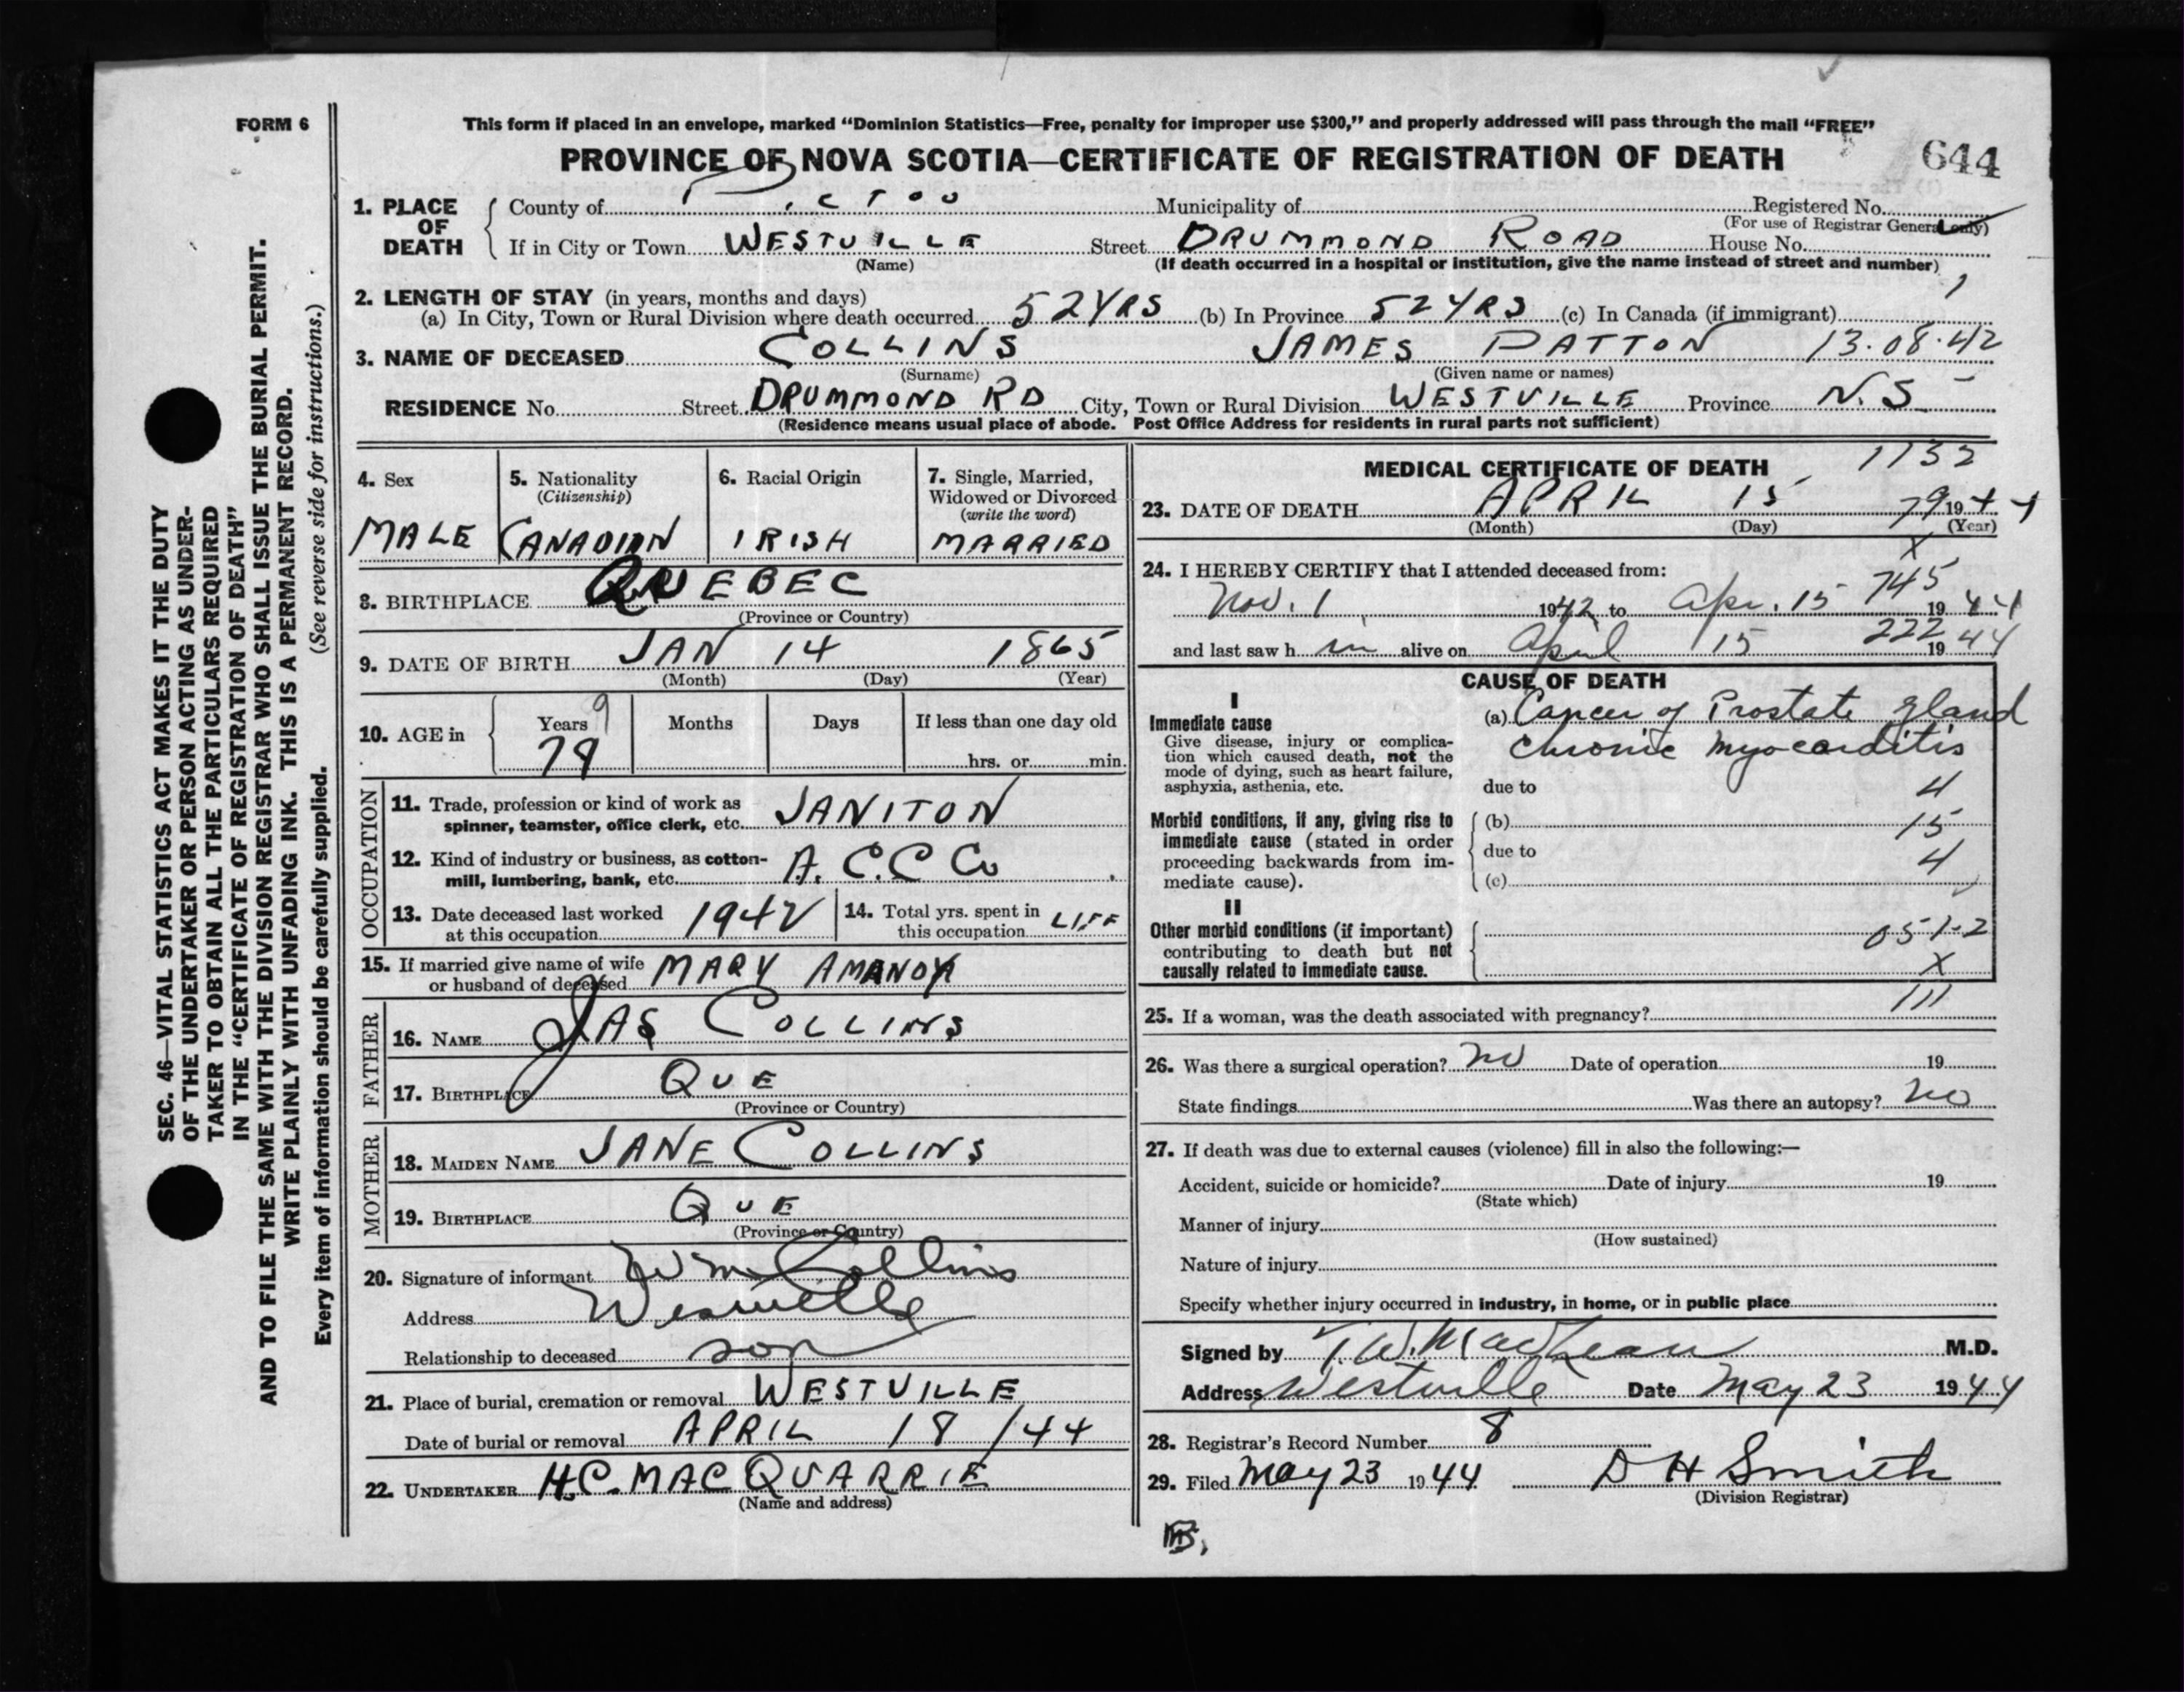 FORM 6
This form if placed in an envelope, marked "Dominion Statistics—Free, penalty for improper use $300," and properly addressed will pass through the mail "FREE"
PROVINCE OF NOVA SCOTIA—CERTIFICATE OF REGISTRATION OF DEATH 644
SEC. 46—VITAL STATISTICS ACT MAKES IT THE DUTY
OF THE UNDERTAKER OR PERSON ACTING AS UNDER-
TAKER TO OBTAIN ALL THE PARTICULARS REQUIRED
IN THE "CERTIFICATE OF REGISTRATION OF DEATH"
AND TO FILE THE SAME WITH THE DIVISION REGISTRAR WHO SHALL ISSUE THE BURIAL PERMIT.
WRITE PLAINLY WITH UNFADING INK. THIS IS A PERMANENT RECORD.
Every item of information should be carefully supplied. (See reverse side for instructions.)
1. PLACE OF DEATH
County of PICTOU Municipality of Registered No.
(For use of Registrar General only)
If in City or Town WESTVILLE Street DRUMMOND ROAD House No.
(Name) (If death occurred in a hospital or institution, give the name instead of street and number)
2. LENGTH OF STAY (in years, months and days) 1
(a) In City, Town or Rural Division where death occurred 52 YRS (b) In Province 52 YRS (c) In Canada (if immigrant)
3. NAME OF DECEASED COLLINS JAMES PATTON 13.08.42
(Surname) (Given name or names)
RESIDENCE No. Street DRUMMOND RD City, Town or Rural Division WESTVILLE Province N.S
(Residence means usual place of abode. Post Office Address for residents in rural parts not sufficient)
4. Sex
MALE
5. Nationality
(Citizenship)
CANADIAN
6. Racial Origin
IRISH
7. Single, Married,
Widowed or Divorced
(write the word)
MARRIED
8. BIRTHPLACE QUEBEC
(Province or Country)
9. DATE OF BIRTH JAN 14 1865
(Month) (Day) (Year)
10. AGE in Years 9 Months Days If less than one day old
79 hrs. or min.
OCCUPATION
11. Trade, profession or kind of work as
spinner, teamster, office clerk, etc. JANITON
12. Kind of industry or business, as cotton-
mill, lumbering, bank, etc. A. C. C Co
13. Date deceased last worked
at this occupation 1942
14. Total yrs. spent in
this occupation LIFE
15. If married give name of wife
or husband of deceased MARY AMANDA
FATHER
16. NAME JAS COLLINS
17. BIRTHPLACE QUE
(Province or Country)
MOTHER
18. MAIDEN NAME JANE COLLINS
19. BIRTHPLACE QUE
(Province or Country)
20. Signature of informant Wm Collins
Address Westville
Relationship to deceased son
21. Place of burial, cremation or removal WESTVILLE
Date of burial or removal APRIL 18/44
22. UNDERTAKER H.C. MACQUARRIE
(Name and address)
MEDICAL CERTIFICATE OF DEATH 1132
23. DATE OF DEATH APRIL 15 79 1944
(Month) (Day) (Year)
X
24. I HEREBY CERTIFY that I attended deceased from:
745
Nov. 1 1942 to Apr. 15 1944
222
and last saw h im alive on April 15 1944
CAUSE OF DEATH
I
Immediate cause
Give disease, injury or complica-
tion which caused death, not the
mode of dying, such as heart failure,
asphyxia, asthenia, etc.
(a) Cancer of Prostate gland
Chronic Myocarditis
due to 4
Morbid conditions, if any, giving rise to
immediate cause (stated in order
proceeding backwards from im-
mediate cause).
(b) 15
due to 4
(c)
II
Other morbid conditions (if important)
contributing to death but not
causally related to immediate cause.
051-2
X
111
25. If a woman, was the death associated with pregnancy?
26. Was there a surgical operation? no Date of operation 19
State findings Was there an autopsy? no
27. If death was due to external causes (violence) fill in also the following:—
Accident, suicide or homicide? Date of injury 19
(State which)
Manner of injury
(How sustained)
Nature of injury
Specify whether injury occurred in industry, in home, or in public place
Signed by T.W. MacLean M.D.
Address Westville Date May 23 1944
28. Registrar's Record Number 8
29. Filed May 23 1944 D H Smith
(Division Registrar)